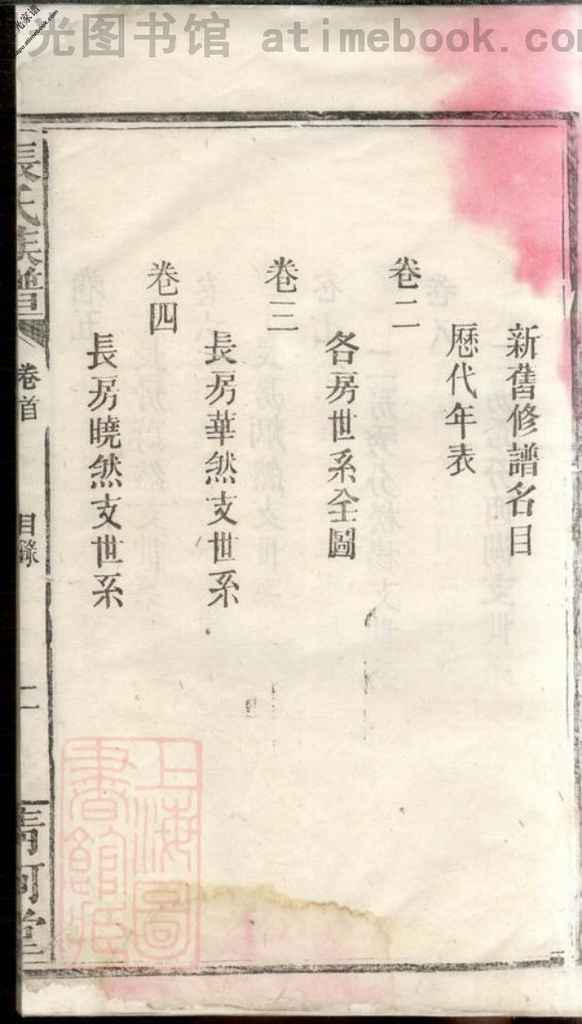 光图书馆 atimebook.com
新舊修譜名目
歷代年表
卷二
各房世系全圖
卷三
長房華然支世系
卷四
長房曉然支世系
張氏族譜
卷首
目錄
二
清河堂
上海圖
書館藏